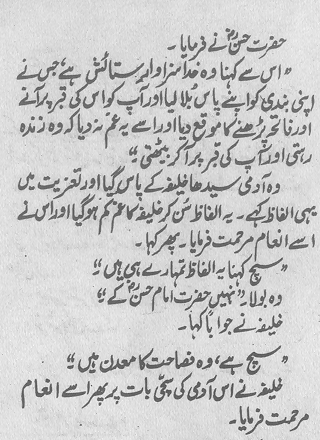 حضرت حسنؓ نے فرمایا۔
"اس سے کہنا وہ خدا سزاوار ستائش ہے، جس نے
اپنی بندی کو اپنے پاس بلا لیا اور آپ کو اس کی قبر پر آنے
اور فاتحہ پڑھنے کا موقع دیا اور اسے یہ غم نہ دیا کہ وہ زندہ
رہتی اور آپ کی قبر پر آ کر بیٹھتی"۔
وہ آدمی سیدھا خلیفہ کے پاس گیا اور تعزیت میں
یہی الفاظ کہے۔ یہ الفاظ سن کر خلیفہ کا غم کم ہو گیا اور اس نے
اسے انعام مرحمت فرمایا۔ پھر کہا۔
"سچ کہنا یہ الفاظ تمہارے ہی ہیں"؟
وہ بولا۔ "نہیں حضرت امام حسنؓ کے"۔
خلیفہ نے جواباً کہا۔
"سچ ہے، وہ فصاحت کا معدن ہیں"۔
خلیفہ نے اس آدمی کی سچی بات پر پھر اسے انعام
مرحمت فرمایا۔